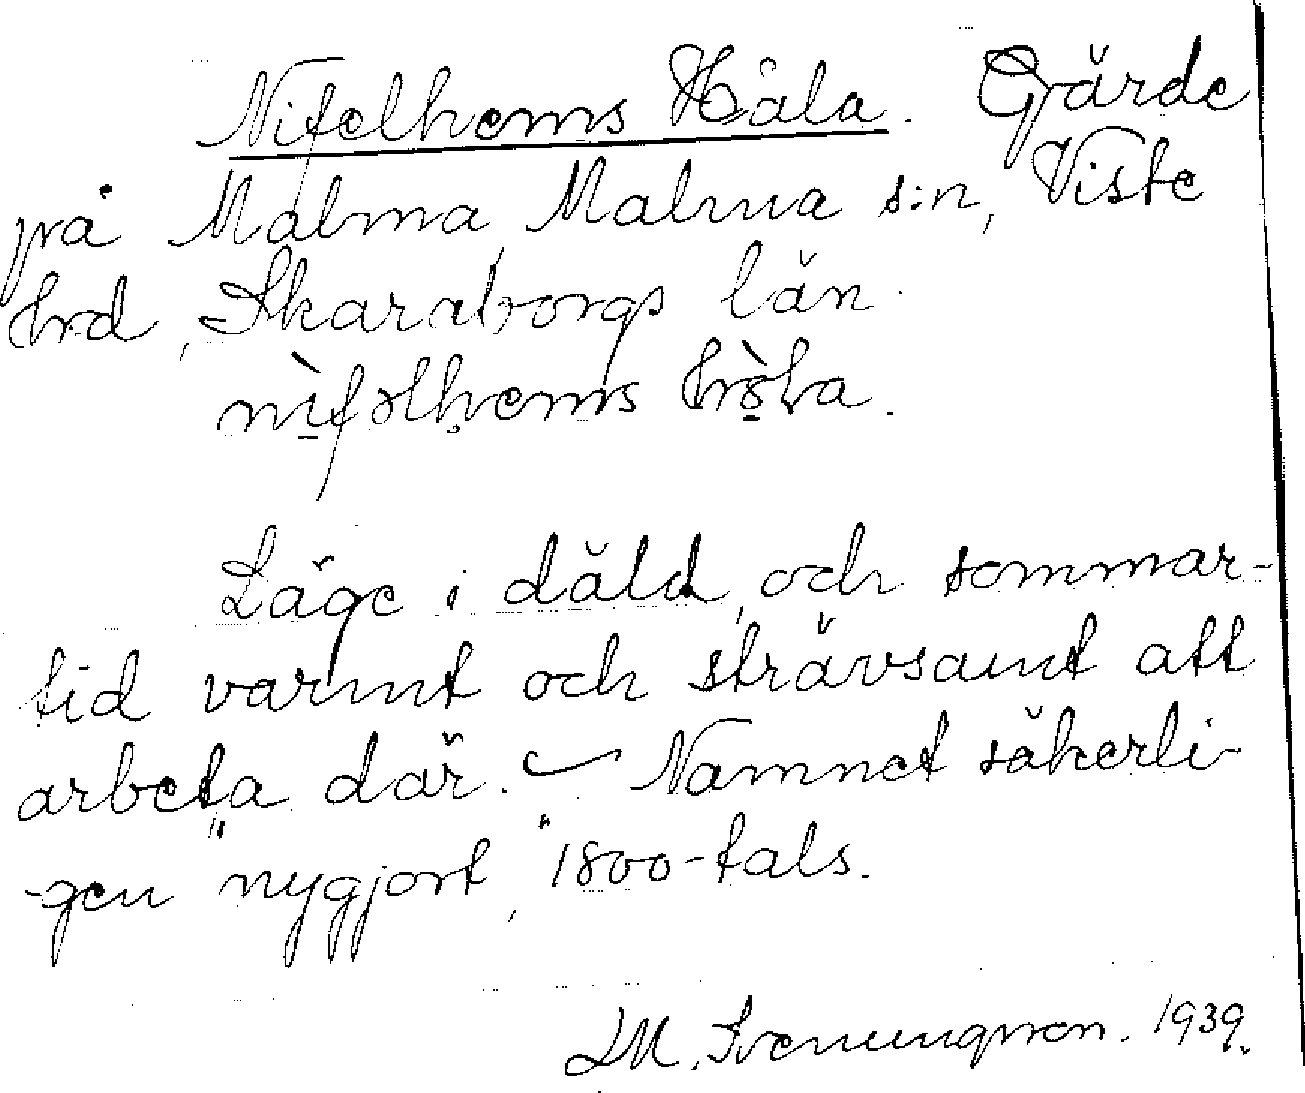 Nifelhems Håla. Gärde
på Malma, Malma s:n, Viste
hrd, Skaraborgs län.
nìfəlhems
Läge i däld, och sommar-
tid varmt och strävsamt att
arbeta där. – Namnet säkerli-
gen "nygjort", 1800-tals.
LM. Svenungsson. 1939.